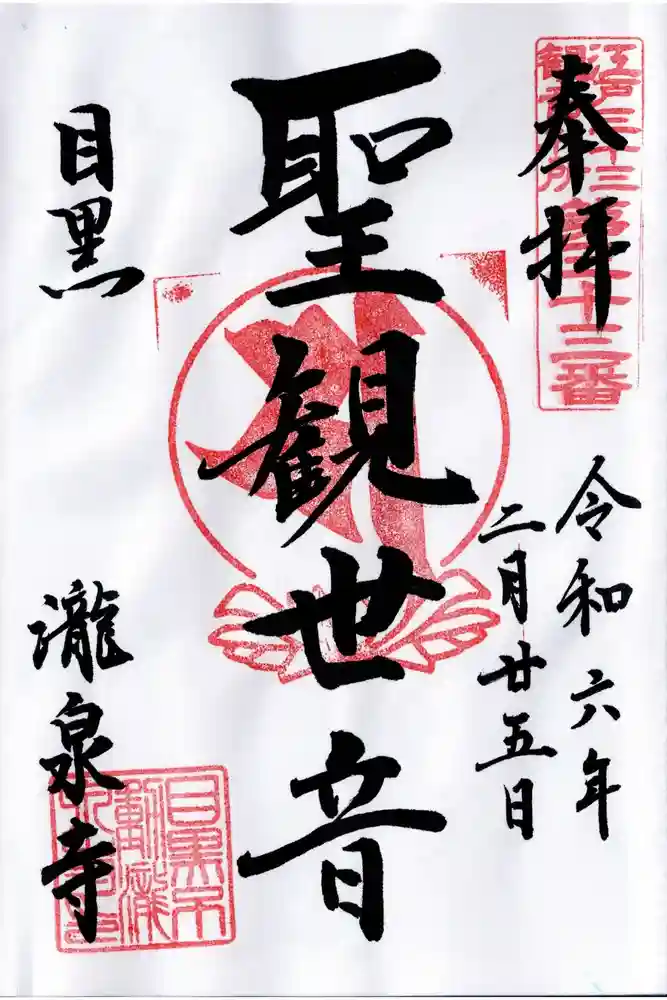 奉拝
江戸三十三
観音札所
第三十三番
令和六年
二月廿五日
聖観世音
目黒
瀧泉寺
目黒不
動瀧